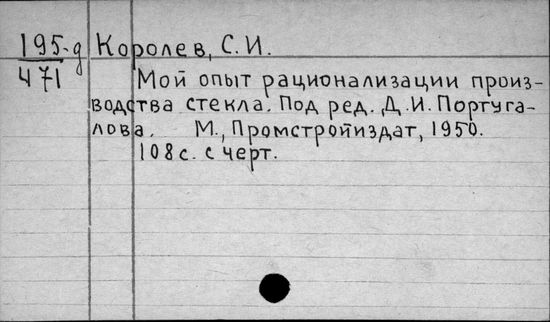 195-д Королев, С.И.
471 Мой опыт рационализации произ-
водства стекла. Под ред. Д.И. Португа-
лова. М., Промстройиздат, 1950.
108 с. с черт.